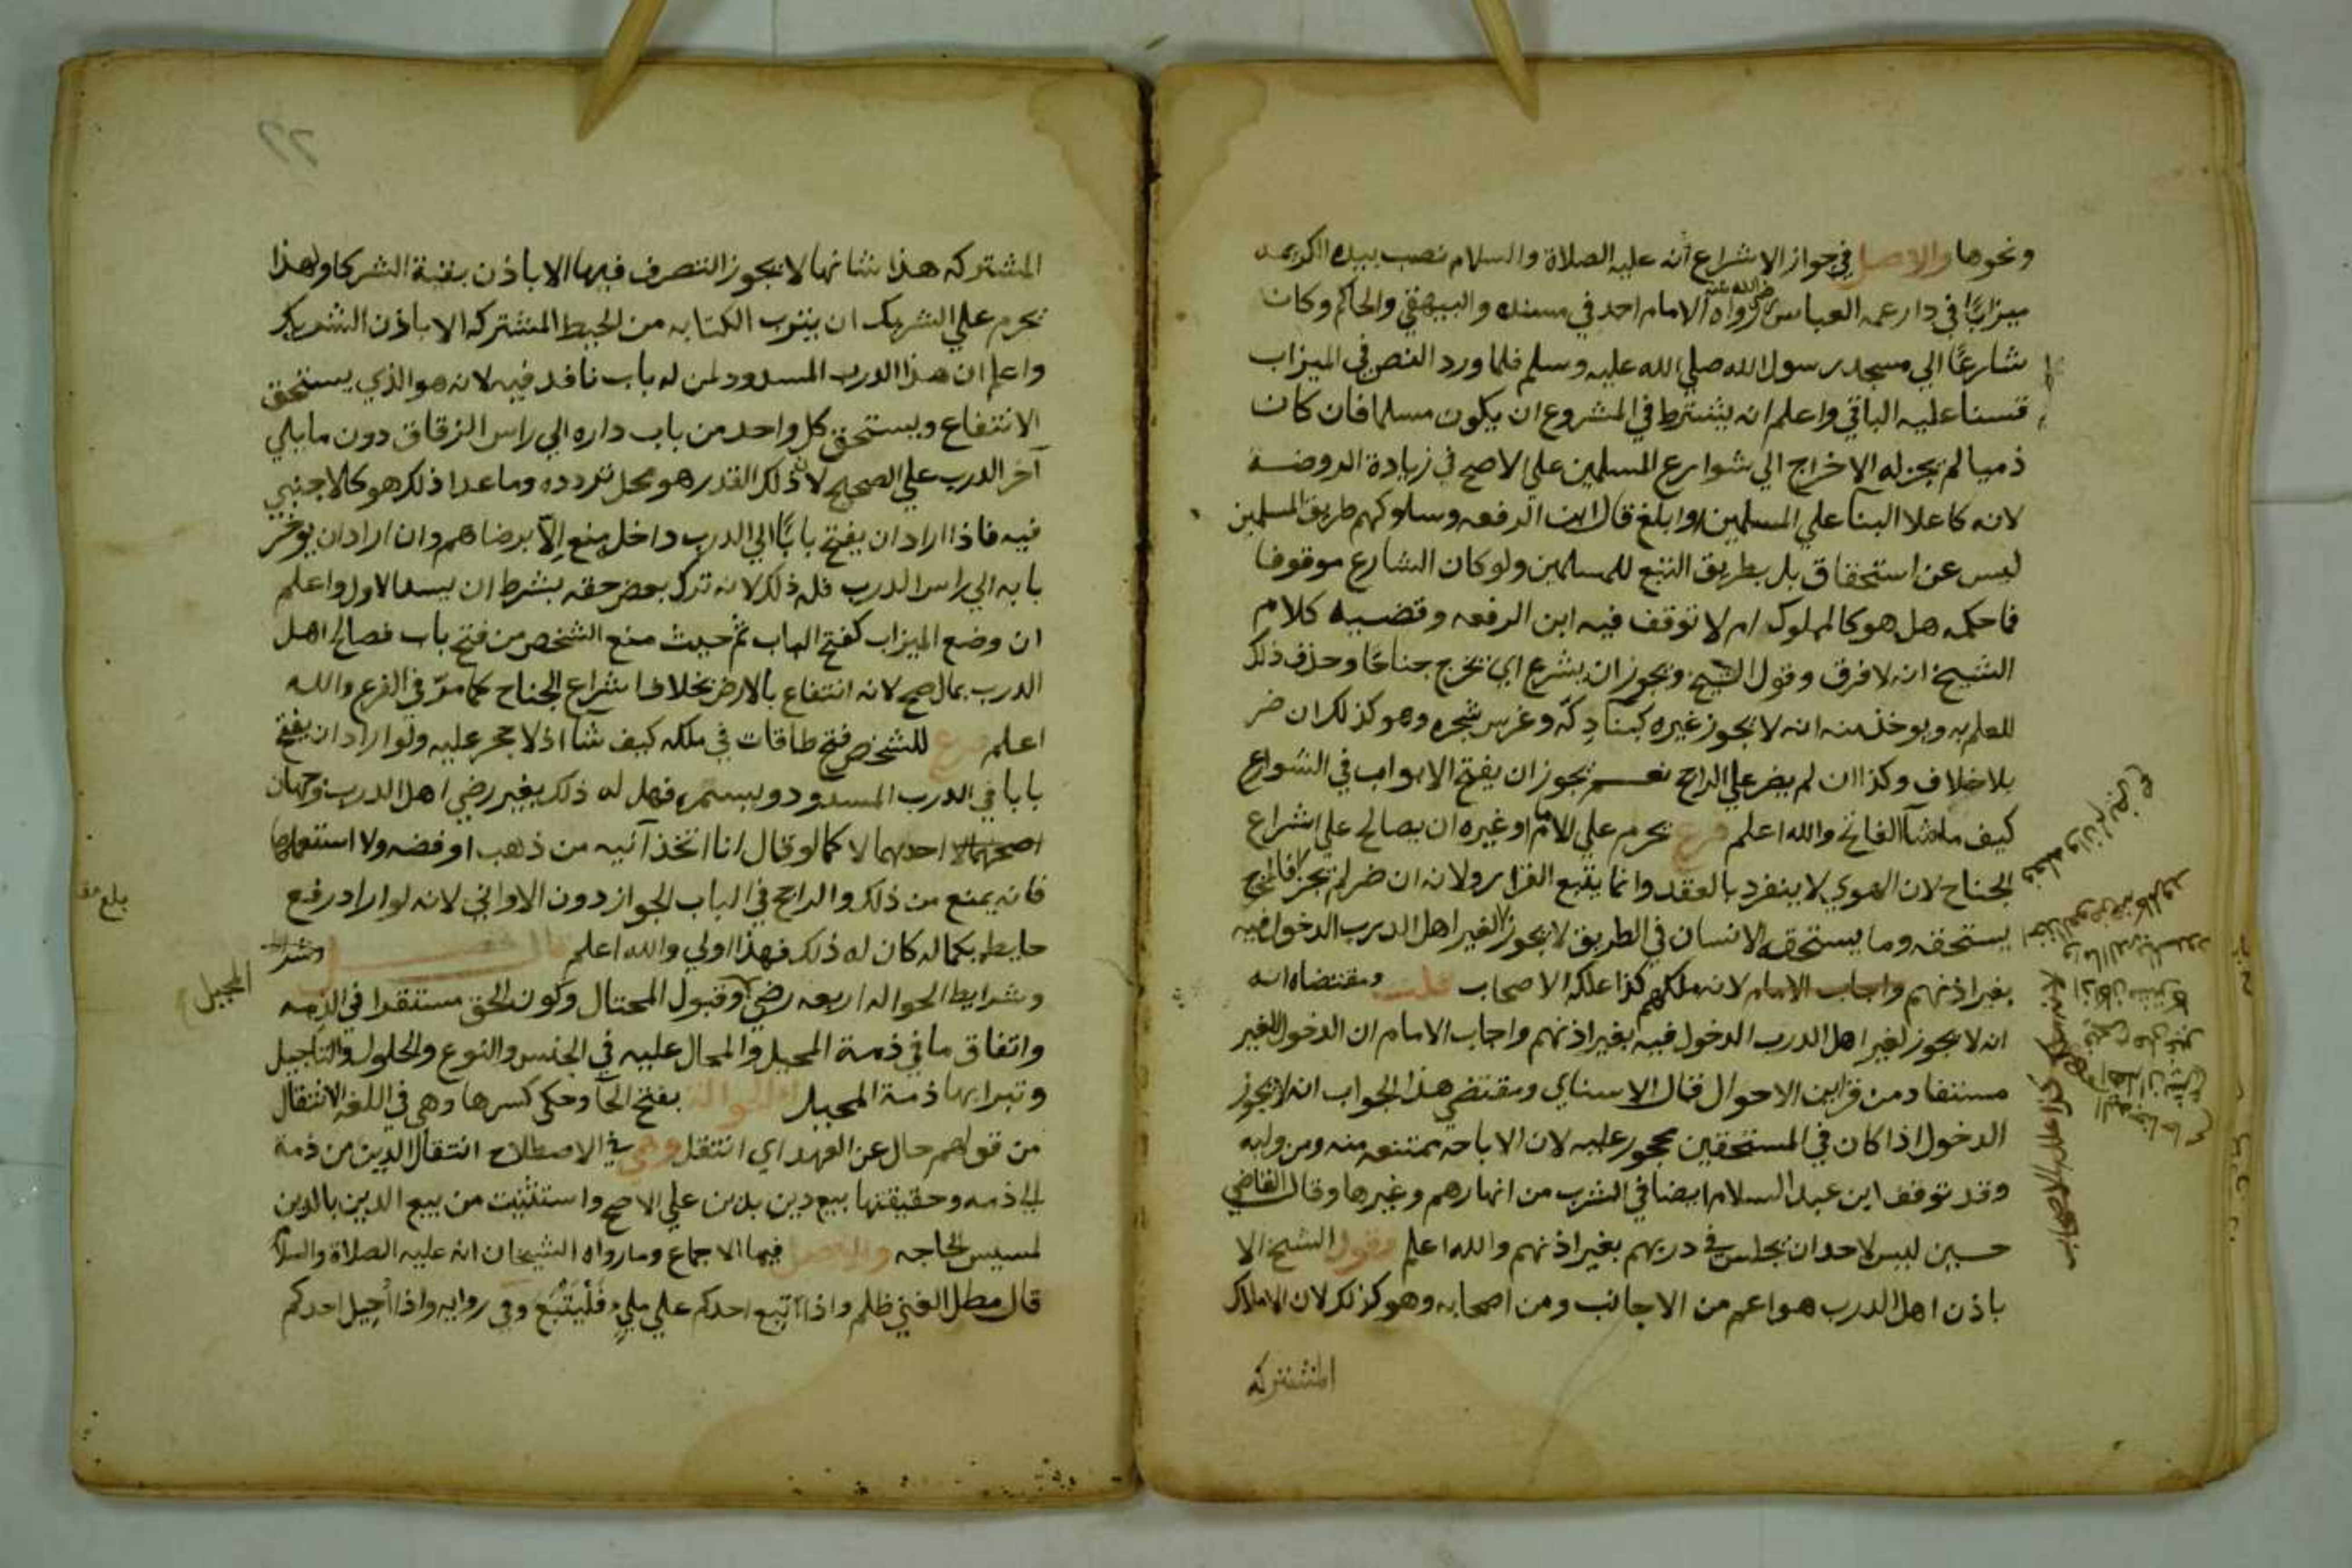 ونحوها والاصل في جواز الاشراع أنه عليه الصلاة والسلام نصب بيده الكريمه
ميزابًا في دار عمه العباس رضي الله عنه رواه الامام احمد في مسنده والبيهقي والحاكم وكان
شارعًا الي مسجد رسول الله صلي الله عليه وسلم فلما ورد النص في الميزاب
قسنا عليه الباقي واعلم انه يشترط في المشروع ان يكون مسلما فان كان
ذميا لم يجز له الاخراج الي شوارع المسلمين علي الاصح في زيادة الروضة
لانه كاعلا البنا علي المسلمين او ابلغ قال ابن الرفعه وسلوكهم طريق المسلمين
ليس عن استحقاق بل بطريق التبع للمسلمين ولو كان الشارع موقوفا
فما حكمه هل هو كالمملوك ام لا توقف فيه ابن الرفعه وقضيه كلام
الشيخ انه لا فرق وقول الشيخ ويجوز ان يشرع اي يخرج جناحًا وحذف ذلك
للعلم به ويوخذ منه انه لا يجوز غيره كبناء دكّه وغرس شجره وهو كذلك ان ضر
بلا خلاف وكذا ان لم يضر علي الراجح نعم يجوز ان يفتح الابواب في الشوارع
كيف ما شآ الفاتح والله اعلم فرع يحرم علي الامام او غيره ان يصالح علي اشراع
الجناح لان الهوي لا ينفرد بالعقد وانما يتبع القرار ولانه ان ضر لم يجز فالمخرج
يستحقه وما يستحقه الانسان في الطريق لا يجوز لغير اهل الدرب الدخول فيه
بغير اذنهم واجاب الامام لانه ملكهم كذا علله الاصحاب قلت ومقتضاه انه
انه لا يجوز لغير اهل الدرب الدخول فيه بغير اذنهم واجاب الامام ان الدخول للغير
مستفاد من قراين الاحوال قال الاسناي ومقتضي هذا الجواب انه لا يجوز
الدخول اذا كان في المستحقين محجور عليه لان الاباحه ممتنعه منه ومن وليه
وقد توقف ابن عبد السلام ايضا في الشرب من انهارهم وغيرها وقال القاضي
حسين ليس لاحد ان يجلس في دربهم بغير اذنهم والله اعلم وقول الشيخ الا
باذن اهل الدرب هو اعم من الاجانب ومن اصحابه وهو كذلك لان الاملاك
المشتركه
كذا علله الاصحاب
المشتركه هذا شانها لا يجوز التصرف فيها الا باذن بقية الشركا ولهذا
يحرم علي الشريك ان يترب الكتابه من الحيط المشتركه الا باذن الشريك
واعلم ان هذا الدرب المسدود لمن له باب نافد فيه لانه هو الذي يستحق
الانتفاع ويستحق كل واحد من باب داره الي راس الزقاق دون ما يلي
آخر الدرب علي الصحيح لان ذلك القدر هو محل تردده وما عدا ذلك هو كالاجنبي
فيه فاذا اراد ان يفتح بابًا الي الدرب داخل منع الّا برضاهم وان اراد ان يوخر
بابه الي راس الدرب فله ذلك لانه ترك بعض حقه بشرط ان يسد الاول واعلم
ان وضع الميزاب كفتح الباب ثم حيث منع الشخص من فتح باب فصالح اهل
الدرب بمال صح لانه انتفاع بالارض بخلاف اشراع الجناح كما مرّ في الفرع والله
اعلم فرع للشخص فتح طاقات في ملكه كيف شا اذ لا حجر عليه ولو اراد ان يفتح
بابا في الدرب المسدود ويسمره فهل له ذلك بغير رضي اهل الدرب وجهان
اصحهما لا احدهما لا كما لو قال انا اتخذ آنيه من ذهب او فضه ولا استعملها
فانه يمنع من ذلك والراجح في الباب الجواز دون الاواني لانه لو اراد رفع
حايطه بكماله كان له ذلك فهذا اولي والله اعلم قال فصل
وشرايط الحواله اربعه رضي المحيل وقبول المحتال وكون الحق مستقرا في الذمه
واتفاق ما في ذمة المحيل والمحال عليه في الجنس والنوع والحلول والتاجيل
وتبرا بها ذمة المحيل الحوالة بفتح الحآ وحكي كسرها وهي في اللغه الانتقال
من قولهم حال عن العهد اي انتقل وهي في الاصطلاح انتقال الدين من ذمة
الي ذمه وحقيقتها بيع دين بدين علي الاصح واستثنيت من بيع الدين بالدين
لمسيس الحاجه والاصل فيها الاجماع وما رواه الشيخان انه عليه الصلاة والسلام
قال مطل الغني ظلم واذا أتبع احدكم علي مليٍ فَلْيَتْبَع وفي روايه واذا أُحيل احدكم
بلغ